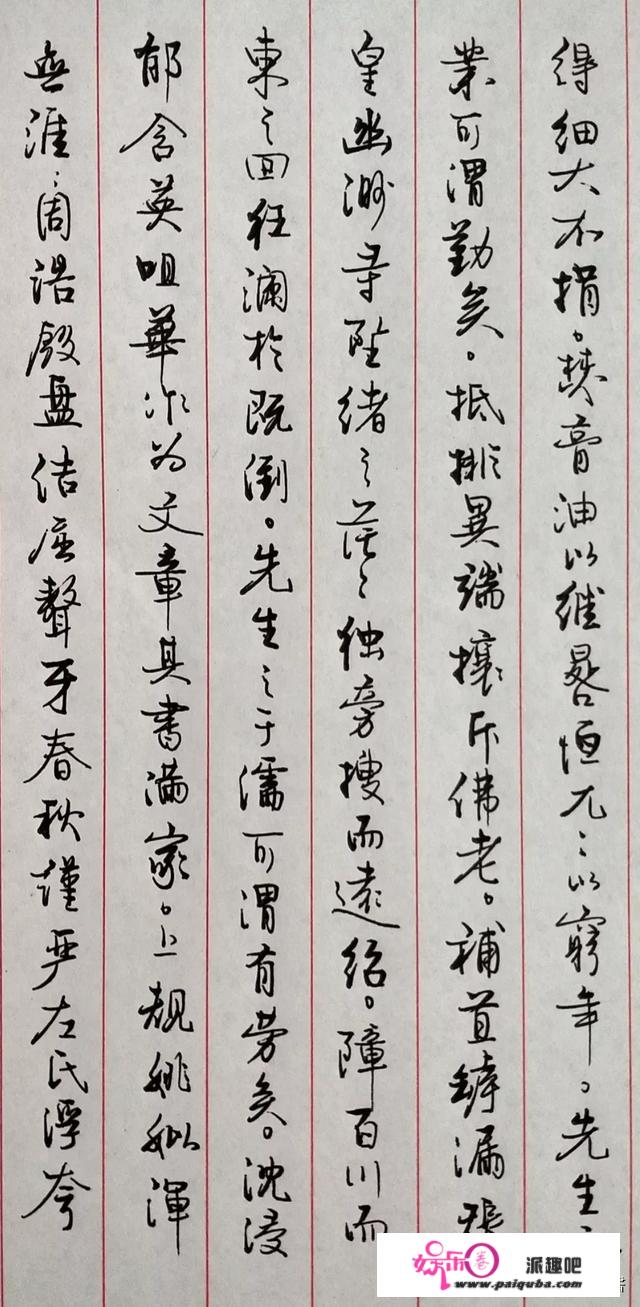 得细大不捐。焚膏油以继晷恒兀々以窮年。先生
業可谓勤矣。抵排異端攘斥佛老。補苴罅漏張
皇幽渺寻坠绪之茫々独旁搜而遠绍。障百川而
東之回狂澜於既倒。先生之于儒可谓有劳矣。沈浸
郁含英咀華作为文章其書满家。上规姚姒渾
無涯々周诰殷盘佶屈聱牙春秋谨严左氏浮夸
娱乐圈 派趣吧
www.paiquba.com